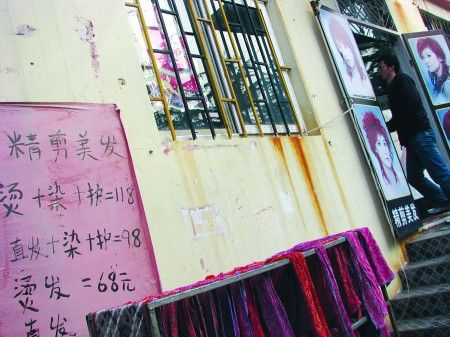 精剪美发
烫+染+护=118
直发+染+护=98
烫发=68元
直发
精剪美发